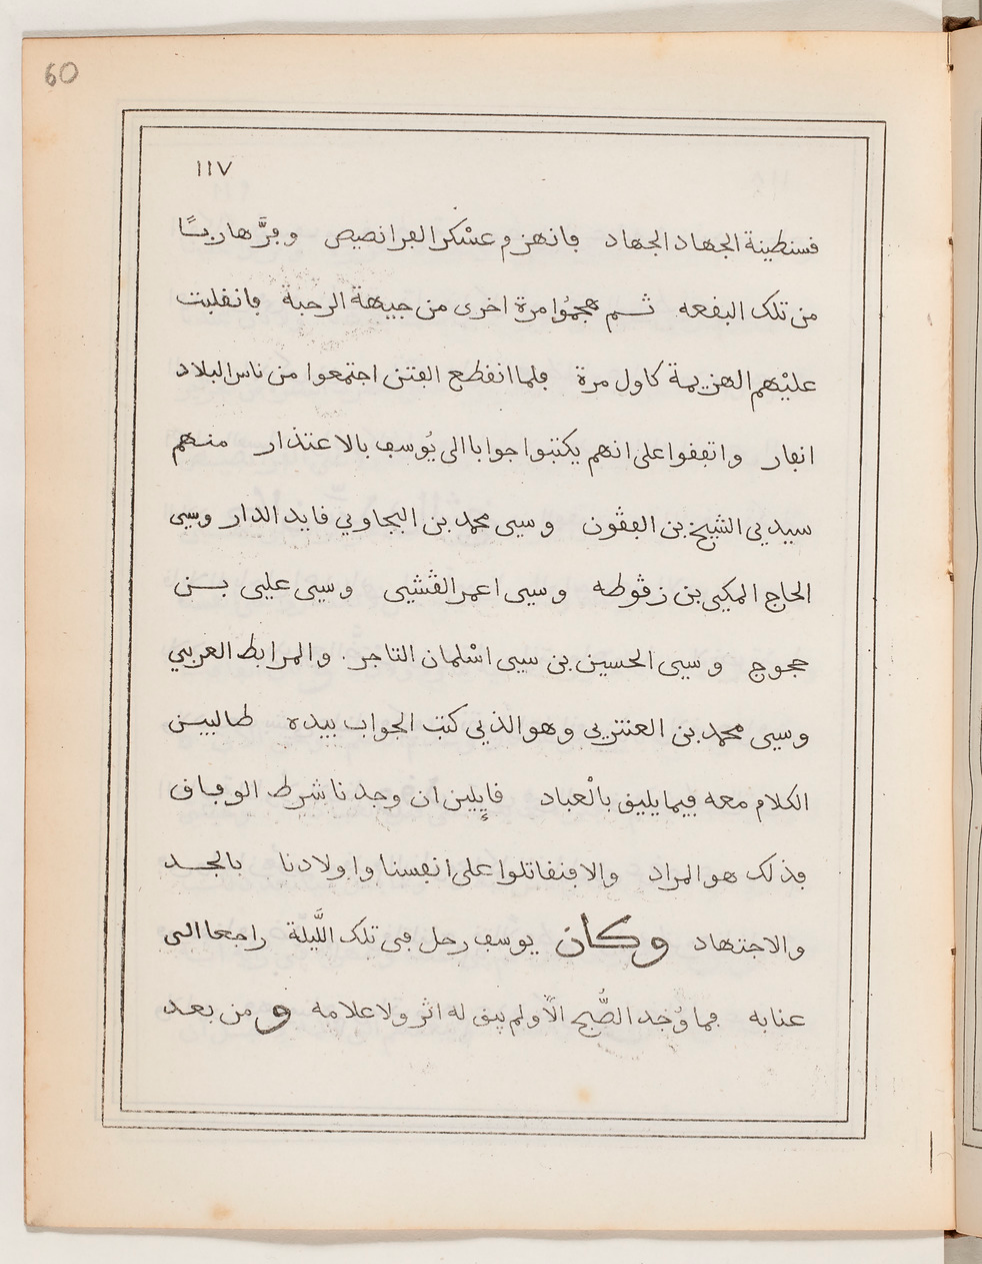 60
١١٧
قسنطينة الجهاد الجهاد فانهزم عسْكر الفرانصيص وفرَّ هاربًا
من تلك البقعه ثم هجمُوا مرة اخرى من جيهة الرحبة فانقلبت
عليْهم الهزيمة كاول مرة فلما انقطع الفتن اجتمعوا من ناس البلاد
انفار واتفقوا على انهم يكتبوا جوابا الى يُوسف بالاعتذار منهم
سيدي الشيخ بن الفڨون وسي محمد بن البجاوي قايد الدار وسي
الحاج المكي بن زڨوطه وسي اعمر الڨشي وسي علي بن
حجوج وسي الحسين بن سي اسْلمان التاجر . والمرابط العربي
وسي محمد بن العنتري وهو الذي كتب الجواب بيده طالبين
الكلام معه فيما يليق بالْعباد قايلين ان وجدنا شرط الوفاق
فذلك هو المراد والا فنقاتلوا على انفسنا واولادنا بالجد
والاجتهاد وكان يوسف رحل في تلك اللَّيلة راجعا الى
عنابه فما وُجد الصُّبح الّا ولم يبق له اثر ولا علامه ومن بعد